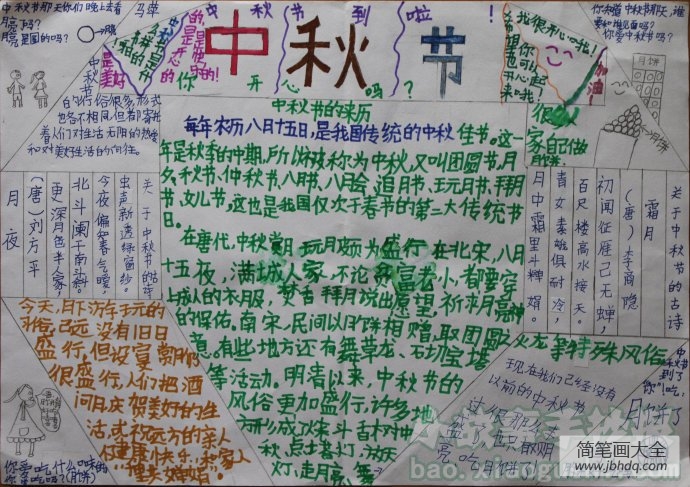 中秋节到啦！
中秋节
你开心吗？
中秋节那天你们晚上去看
马萍
月亮是圆的吗？
我很开心哦！
希望你也可以
开心起来哈！
加油！
你知道中秋节那天，谁
你爱中秋节吗？
月饼
中秋节
的行俗很多，形式
也各不相同，但都寄托
着人们对生活无限的热爱
和对美好生活的向往。
很
一家自己做
月饼
中秋节的来历
每年农历八月十五日，是我国传统的中秋佳节。这一
年是秋季的中期，所以被称为中秋，又叫团圆节，月
夕、秋节、仲秋节、八月节、八月会、追月节、玩月节、拜月
节、女儿节，这也是我国仅次于春节的第二大传统节
日。
在唐代，中秋赏月、玩月颇为盛行。在北宋，八月
十五夜，满城人家，不论贫富老小，都要穿
上成人的衣服，焚香拜月说出愿望，祈求月亮神
的保佑。南宋，民间以月饼相赠，取团圆
息。有些地方还有舞草龙、石切宝塔
等活动。明者以来，中秋节的
风俗更加盛行，许多地
方形成了烧斗香、树中
秋、点塔灯、放天
灯、走月亮、舞
火龙等特殊风俗
关于中秋节的古诗
月夜
（唐）刘方平
更深月色半人家，
北斗阑干南斗斜。
今夜偏知春气暖，
虫声新透绿窗纱。
关于中秋节的古诗
霜月
（唐）李商隐
初闻征雁已无蝉，
百尺楼高水接天。
青女素娥俱耐冷，
月中霜里斗婵娟。
今天，月下游玩的
习俗已远没有旧日
盛行。但设宴赏月仍
很盛行，人们把酒
问月，庆贺美好的生
活，或祝远方的亲人
健康快乐，和家人
“千里共婵娟”。
现在我们已经没有
以前的中秋节
过得那么
你要吃什么味的
中秋节
到了
你吃
月饼了
吗？
简笔画大全
www.jbhdq.com
bao.xiaoguiwu.com